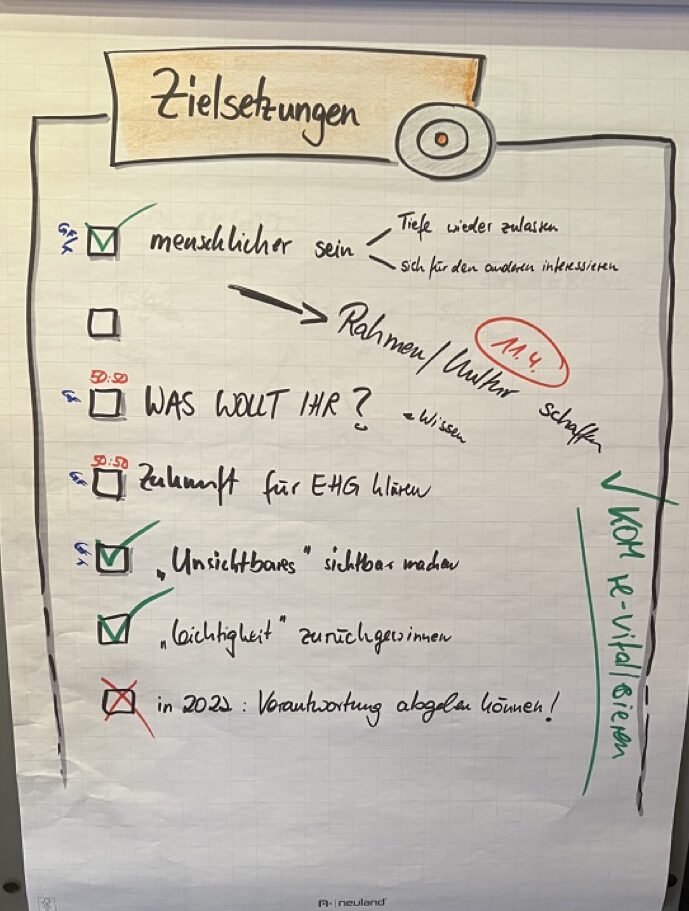 Zielsetzungen
menschlicher sein
Tiefe wieder zulassen
sich für den anderen interessieren
Rahmen/Kultur schaffen
11.4.
50:50
WAS WOLLT IHR?
Wissen
50:50
Zukunft für EHG klären
„Unsichtbares" sichtbar machen
„Leichtigkeit" zurückgewinnen
in 2022: Verantwortung abgeben können!
KOM re-vitalisieren
neuland